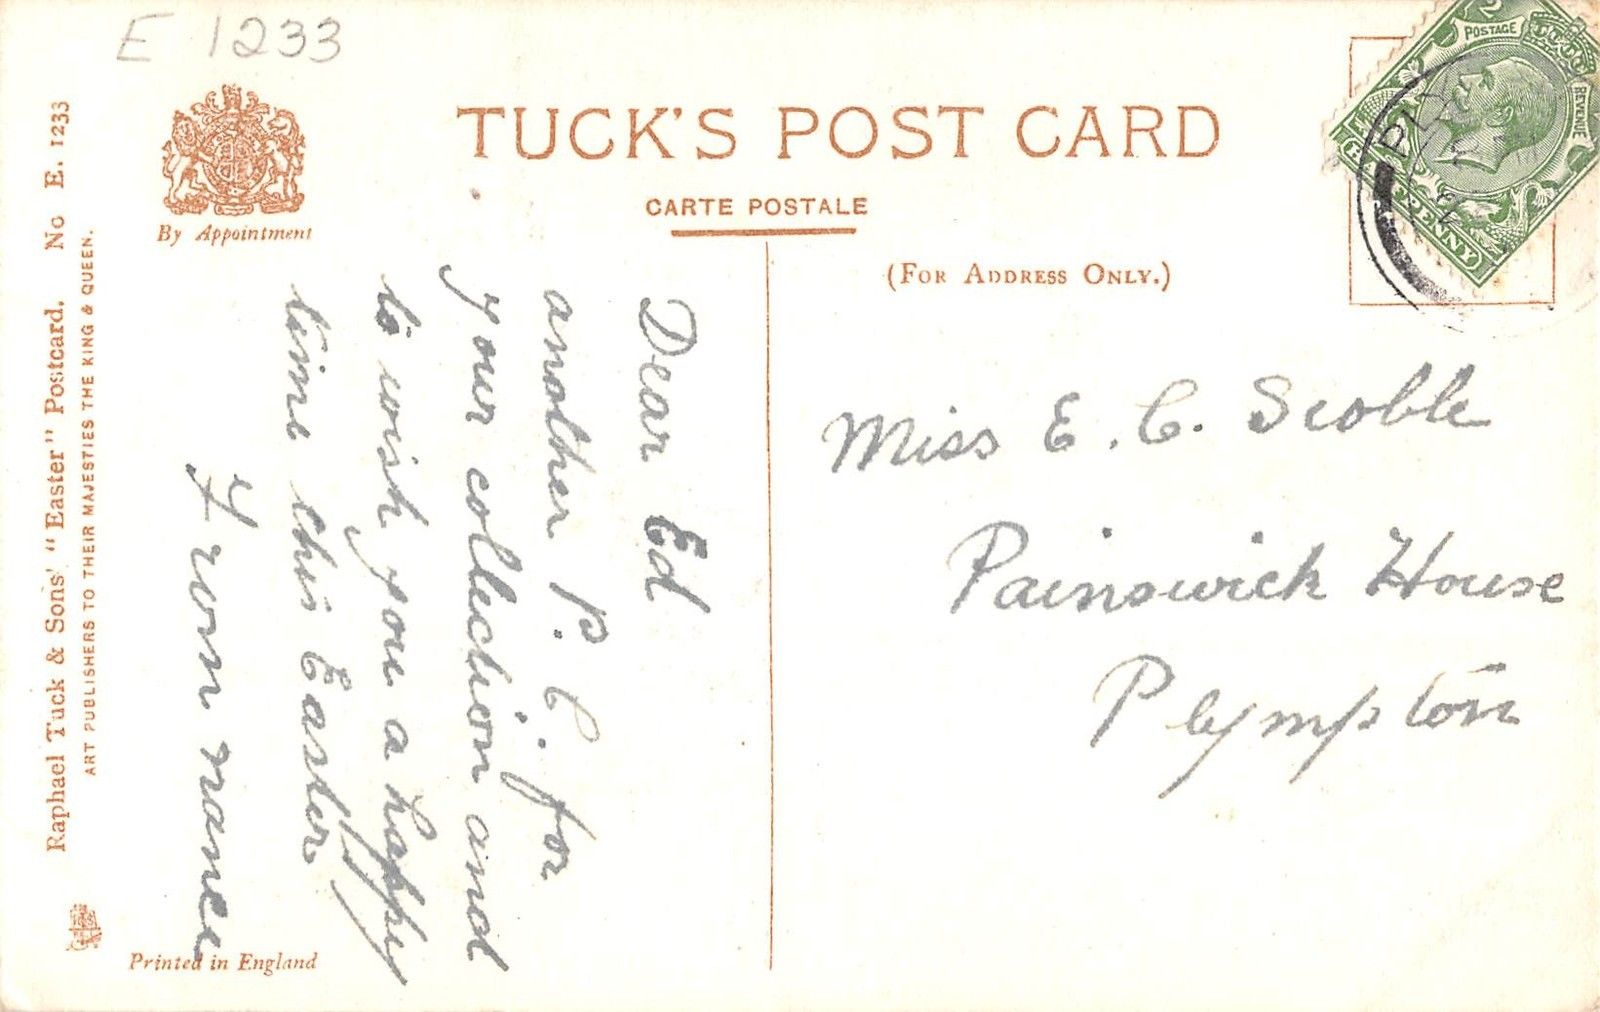 E 1233
TUCK'S POST CARD
CARTE POSTALE
By Appointment
(FOR ADDRESS ONLY.)
POSTAGE
REVENUE
HALFPENNY
PLY
Raphael Tuck & Sons' "Easter" Postcard. No E. 1233
ART PUBLISHERS TO THEIR MAJESTIES THE KING & QUEEN.
Dear Ed
another P. C. for
your collection and
to wish you a happy
time this Easter
From nance
Miss E. C. Scoble
Painswick House
Plympton
Printed in England